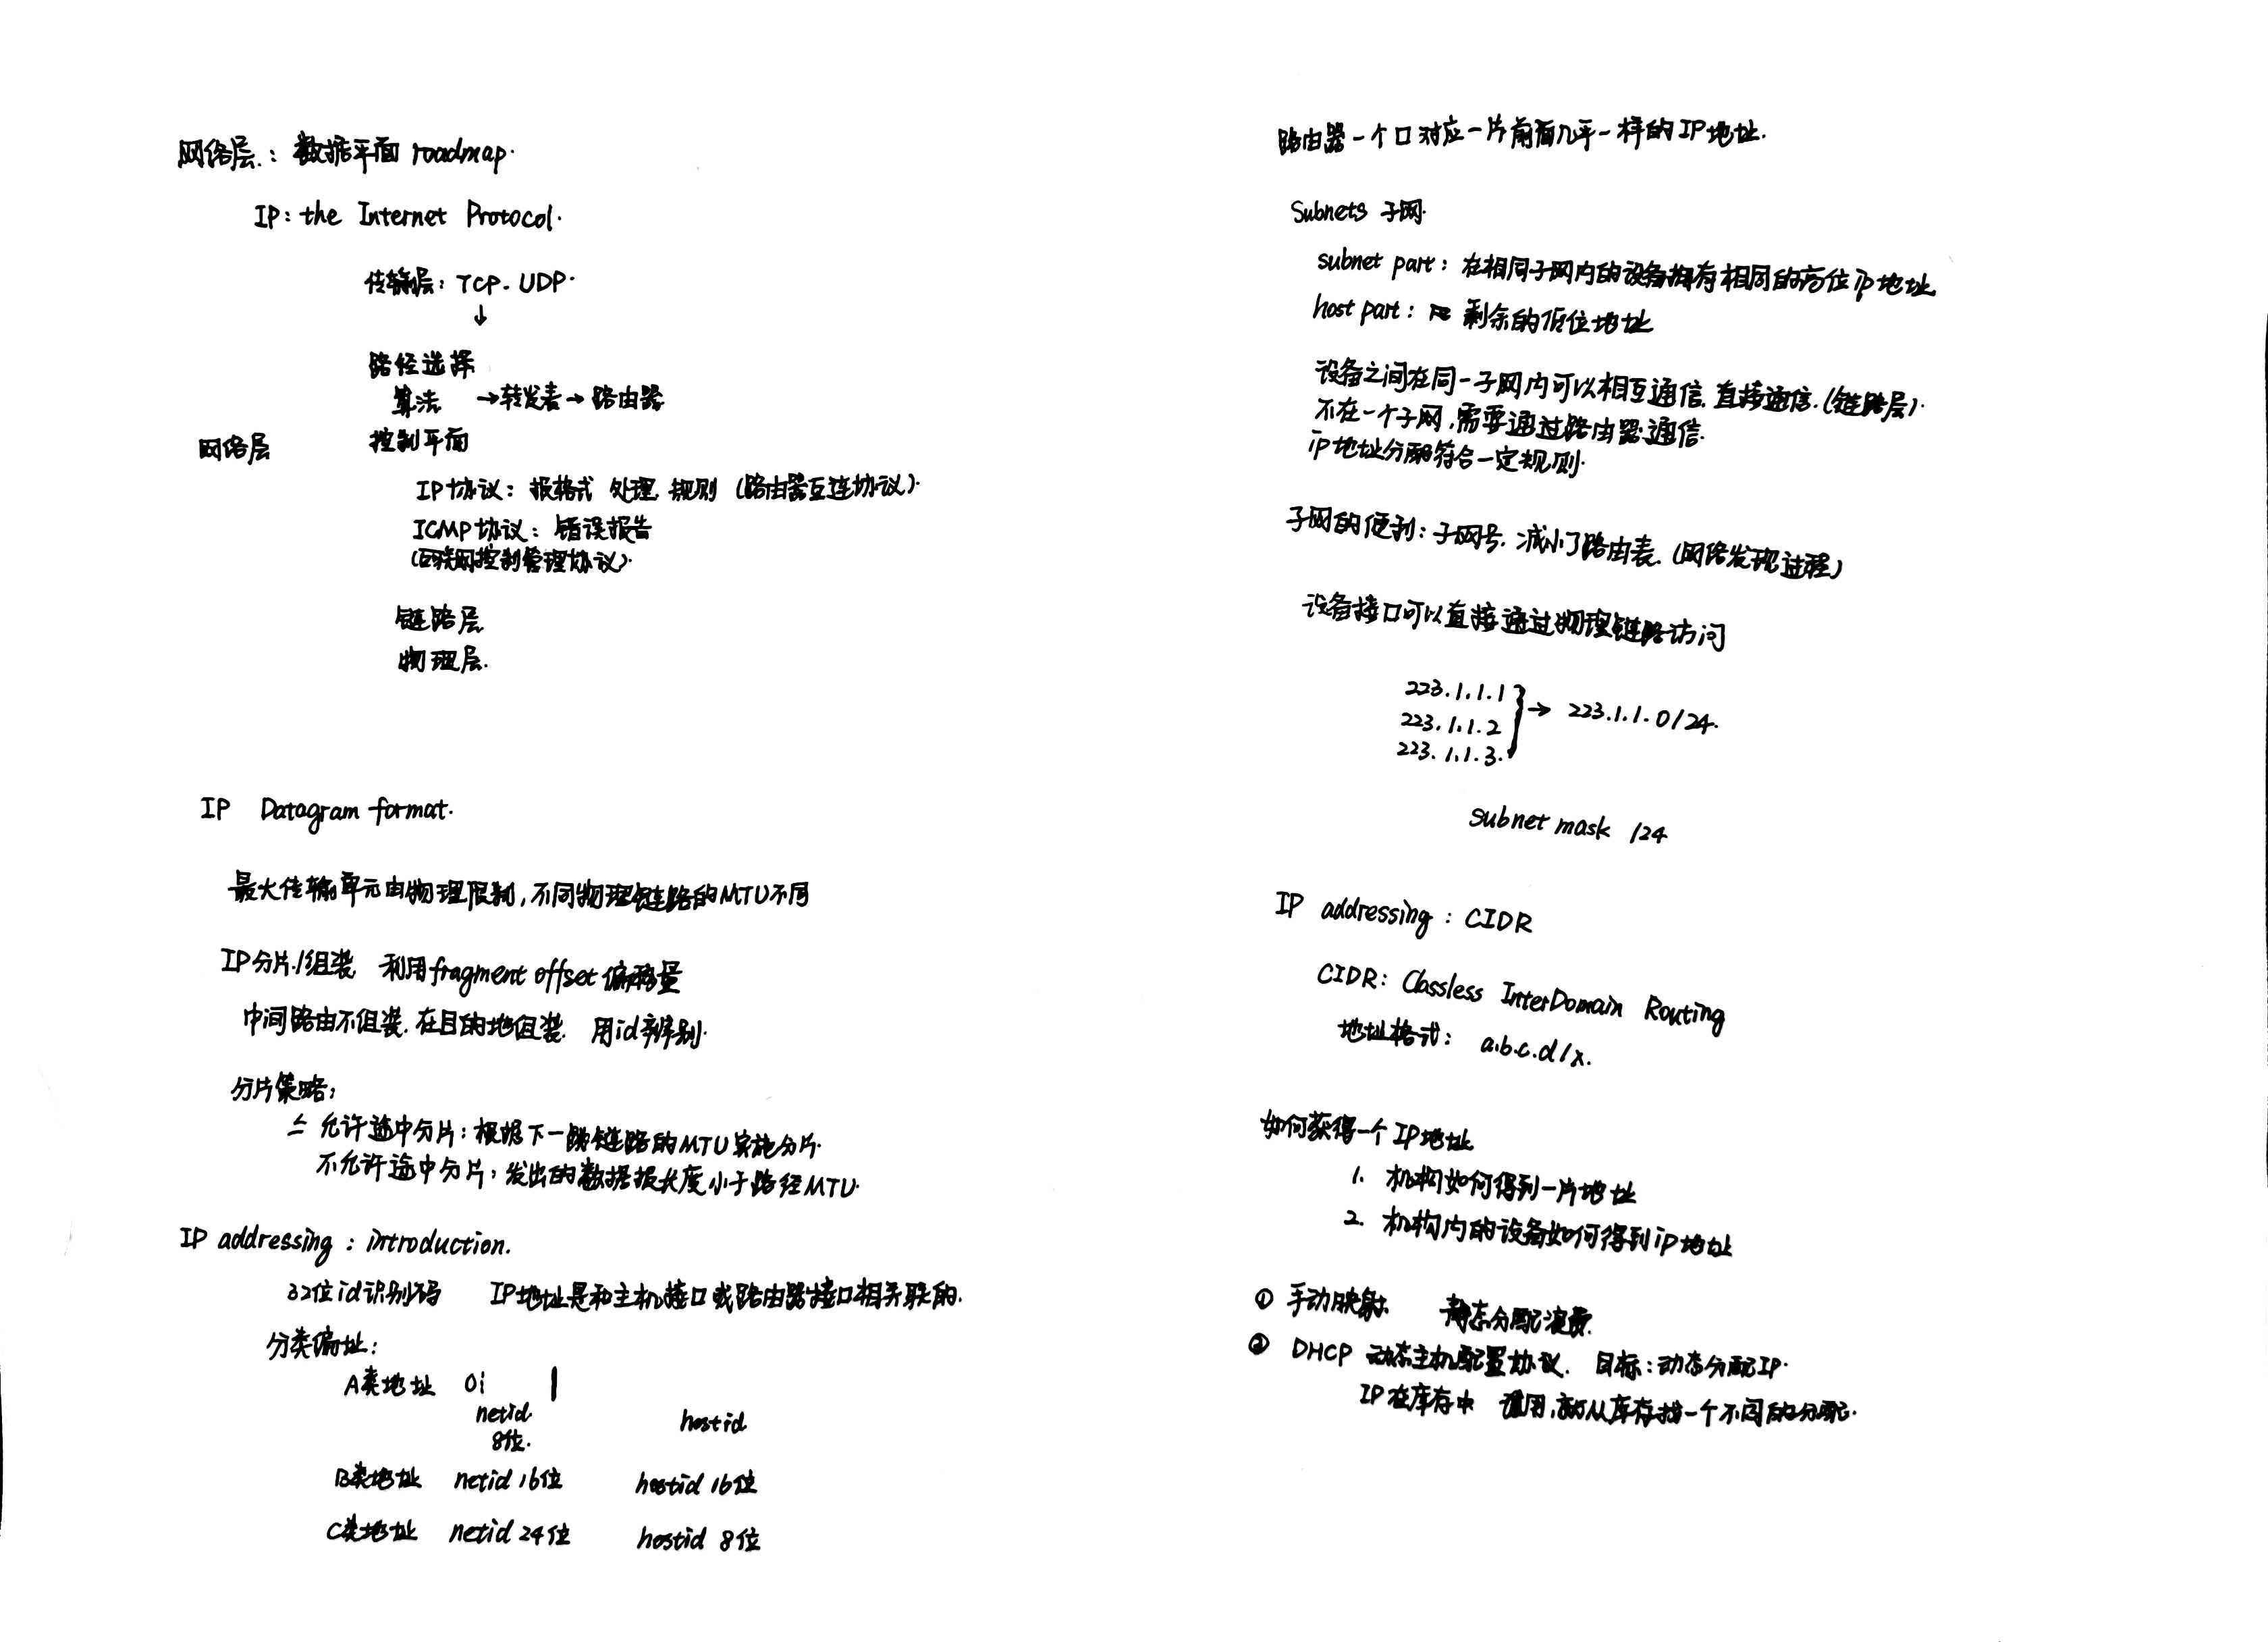 网络层：数据平面 roadmap.
IP: the Internet Protocol.
传输层：TCP. UDP.
↓
路径选择
算法 →转发表→路由器
网络层 控制平面
IP协议：报格式 处理 规则 (路由器互连协议).
ICMP协议：错误报告
(互联网控制管理协议).
链路层
物理层.
IP Datagram format.
最大传输单元由物理限制,不同物理链路的MTU不同
IP分片/组装 利用fragment offset 偏移量
中间路由不组装.在目的地组装. 用id辨别.
分片策略：
允许途中分片：根据下一跳链路的MTU实施分片.
不允许途中分片：发出的数据报长度小于路径MTU.
IP addressing : introduction.
32位id识别码 IP地址是和主机接口或路由器接口相关联的.
分类编址：
A类地址 0
netid hostid
8位.
B类地址 netid 16位 hostid 16位
C类地址 netid 24位 hostid 8位
路由器一个口对应一片前面几乎一样的IP地址.
Subnets 子网.
subnet part: 在相同子网内的设备拥有相同的高位ip地址
host part: 剩余的低位地址
设备之间在同一子网内可以相互通信.直接通信.(链路层).
不在一个子网,需要通过路由器通信.
ip地址分配符合一定规则.
子网的便利：子网号.减小了路由表.(网络发现过程)
设备接口可以直接通过物理链路访问
223.1.1.1
223.1.1.2 → 223.1.1.0/24.
223.1.1.3.
subnet mask /24
IP addressing : CIDR
CIDR: Classless InterDomain Routing
地址格式： a.b.c.d/x.
如何获得一个IP地址
1. 机构如何得到一片地址
2. 机构内的设备如何得到ip地址
① 手动映射. 静态分配浪费.
② DHCP 动态主机配置协议. 目标：动态分配IP.
IP在库存中 用,从库存找一个不同的分配.